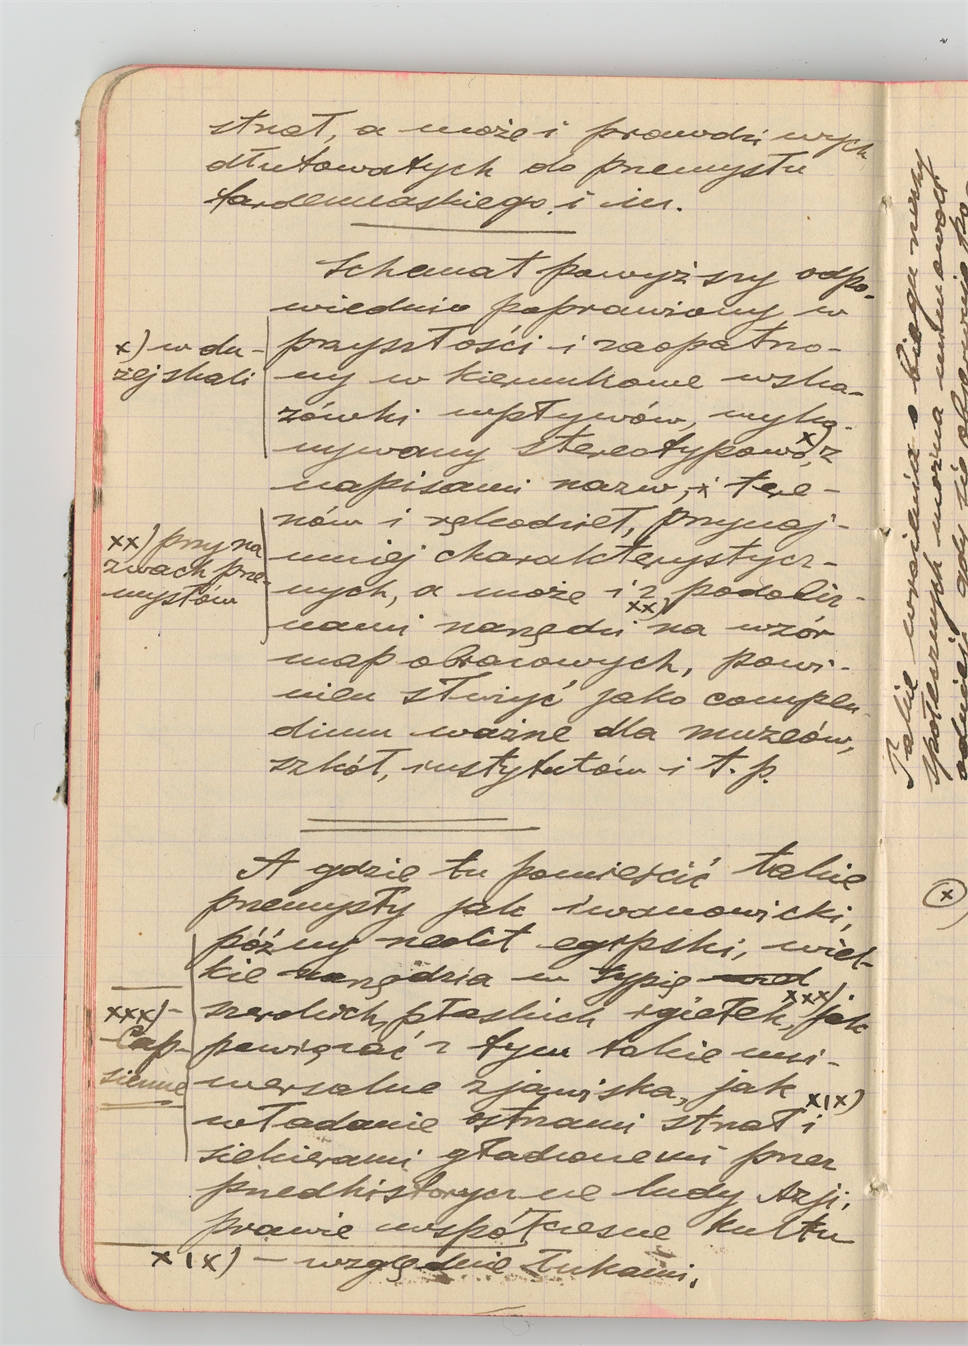 strzał, a może i prawdziwych
dłutowatych do przemysłu
tardenuaskiego i in.
Schemat powyższy odpo-
wiednio poprawiony w
przyszłości i zaopatrzo-
ny w kierunkowe wska-
zówki wpływów, wyko-
nywany stereotypowo x) z
napisami nazw, i tere-
nów i rękodzieł, przynaj-
mniej charakterystycz-
nych, a może i z podobiz-
nami narzędzi xx) na wzór
map obrazowych, powi-
nien służyć jako compen-
dium ważne dla muzeów,
szkół, instytutów i t. p.
x) w du-
żej skali
xx) przy na
zwach prze-
mysłów
A gdzie tu pomieścić takie
przemysły jak iwanowicki,
późny neolit egipski, wiel-
kie narzędzia w typie
szerokich, płaskich igiełek, xxx) jak
powiązać z tym takie uni-
wersalne zjawiska, jak
władanie ostrzami strzał i xıx)
siekierami gładzonemi przez
przedhistoryczne ludy Azji,
prawie współczesne kultu
xxx) -
Cap-
sienne
xıx) – względnie łukami,
Takie wyrażenia o biegu
społecznych można
odnieść, gdy się
(x)